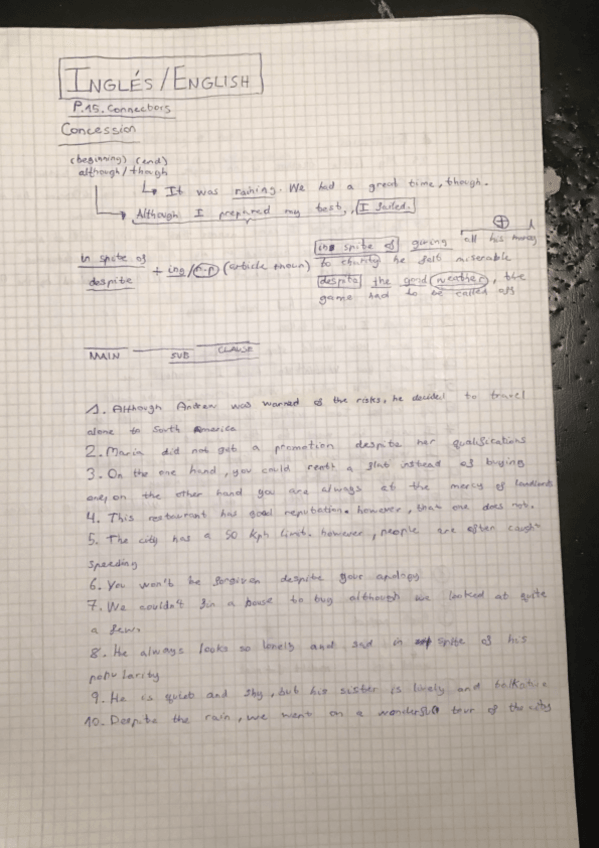 INGLÉS/ENGLISH
P.45. Connectors
Concession
(beginning) (end)
although/though
It was raining. We had a great time, though.
Although I prephared my test, I failed.
in spite of
despite
+ ing/n-p (article + noun)
in spite of giving all his money
to charity he felt miserable
despite the good weather, the
game had to be called off
MAIN SUB CLAUSE
1. Although Andrew was warned of the risks, he decided to travel
alone to South America
2. Maria did not get a promotion despite her qualifications
3. On the one hand, you could rent a flat instead of buying
one, on the other hand you are always at the mercy of landlords
4. This restaurant has good reputation. however, that one does not.
5. The city has a 50 kph limit. however, people are often caught
speeding
6. You won't be forgiven despite your apology
7. We couldn't fin a house to buy although we looked at quite
a few.
8. He always looks so lonely and sad in spite of his
popularity
9. He is quiet and shy, but his sister is lively and talkative
10. Despite the rain, we went on a wonderful tour of the city